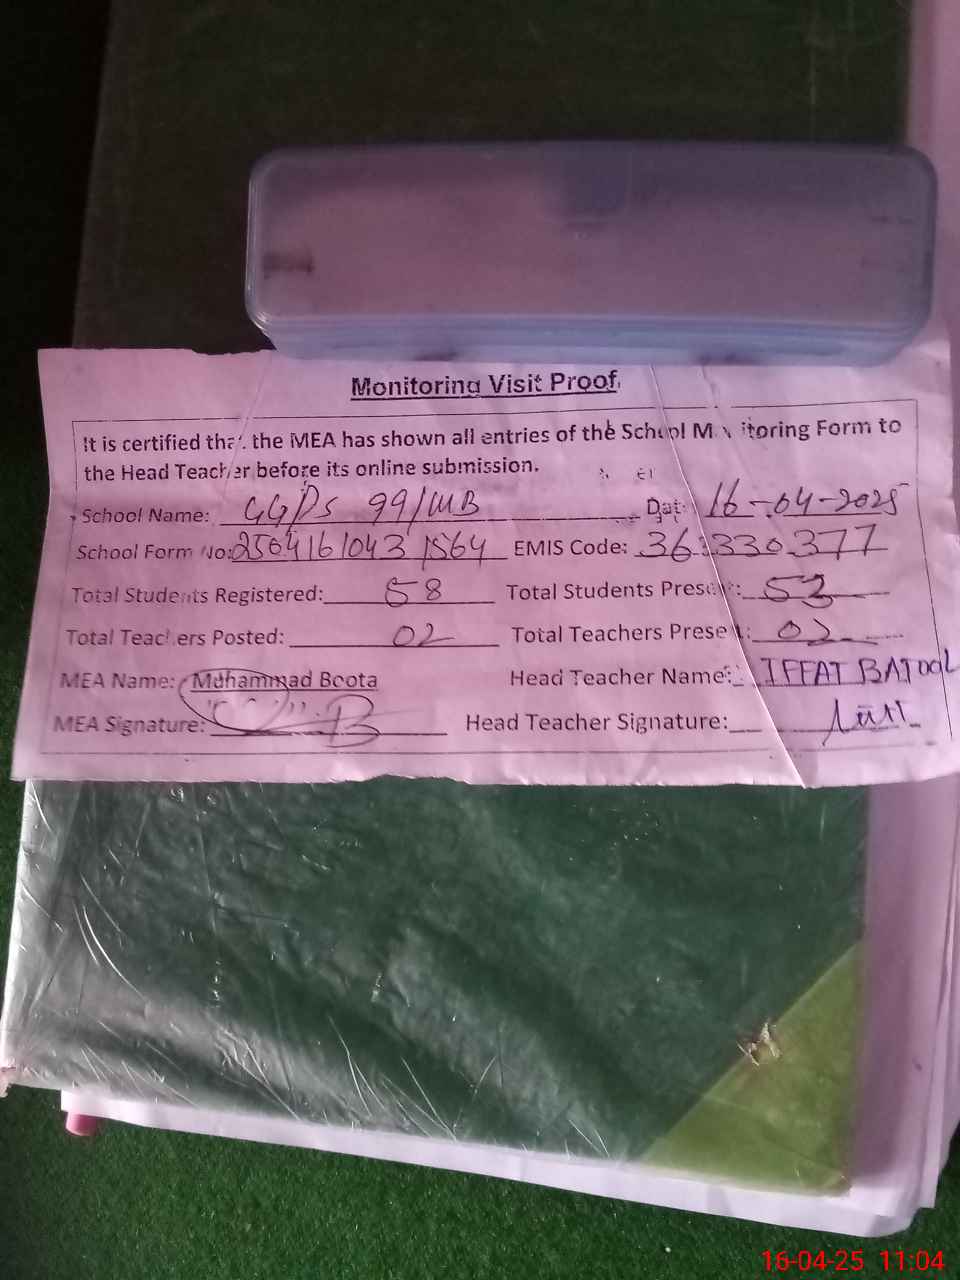 Monitoring Visit Proof
It is certified that the MEA has shown all entries of the School Monitoring Form to
the Head Teacher before its online submission.
School Name: GGPS 99/MB Date: 16-04-2025
School Form No: 2504161043 1564 EMIS Code: 36330377
Total Students Registered: 58 Total Students Present: 53
Total Teachers Posted: 02 Total Teachers Present: 02
MEA Name: Muhammad Boota Head Teacher Name: IFFAT BATOOL
MEA Signature: Head Teacher Signature:
16-04-25 11:04